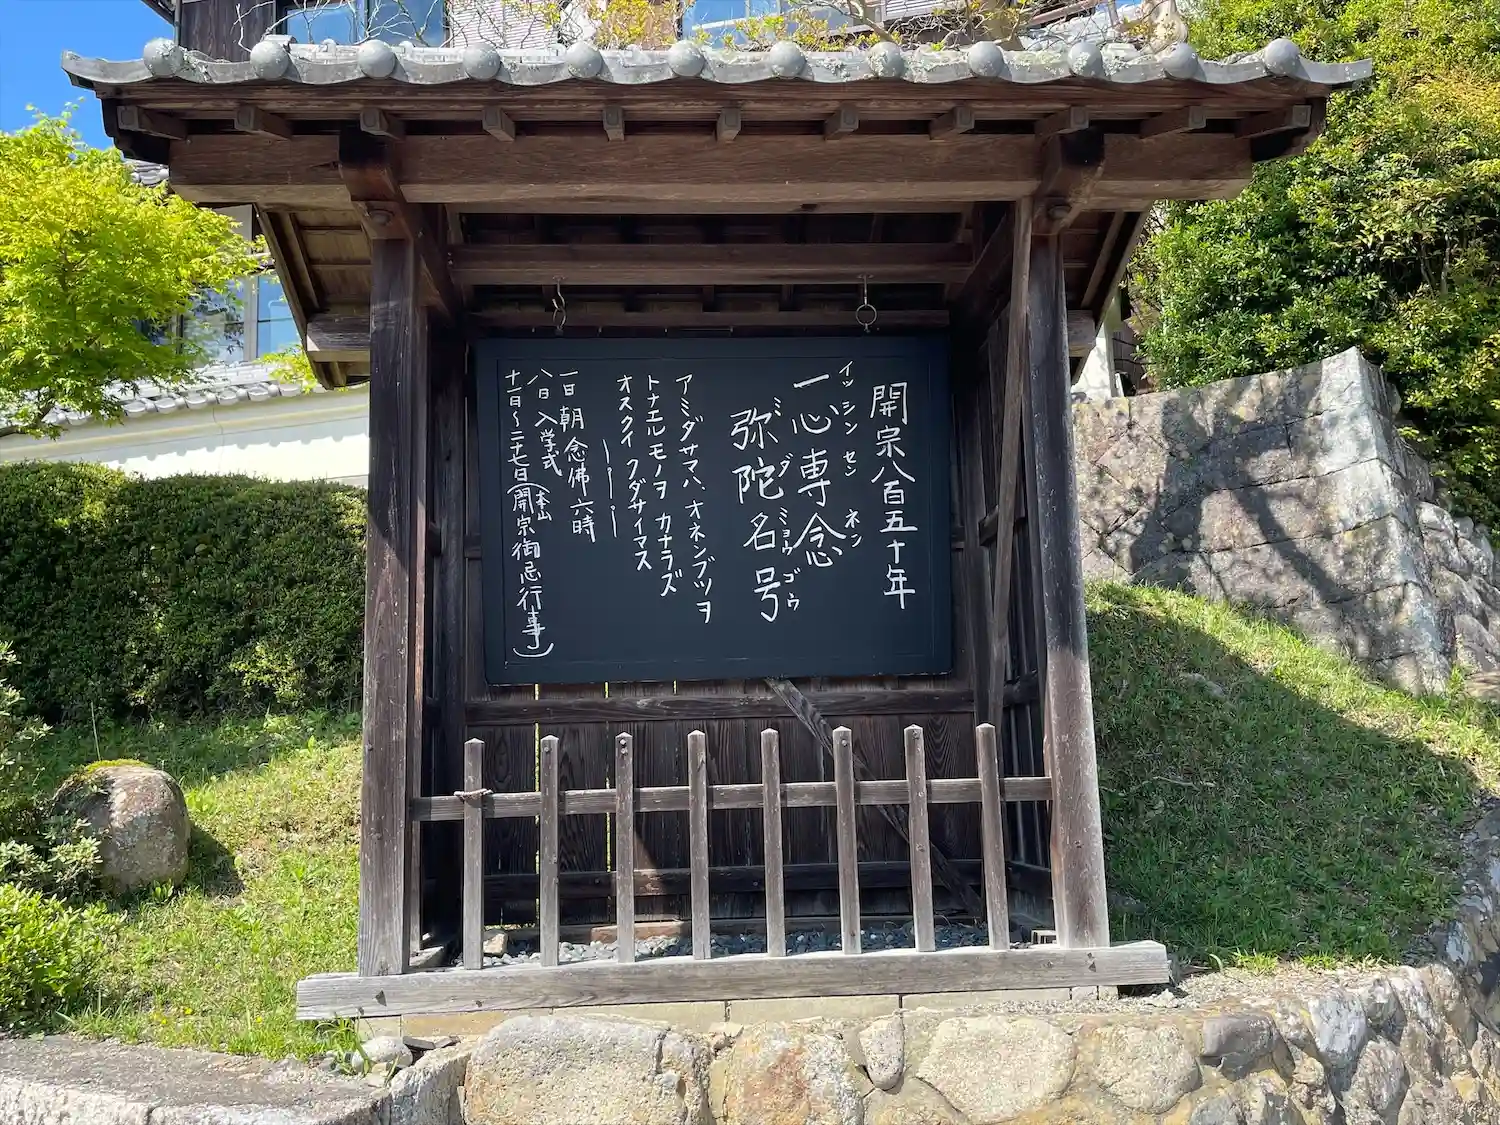 開宗八百五十年
イッシンセン ネン
一心専念
ミダミョウゴウ
弥陀名号
アミダサマハ、オネンブツヲ
トナエルモノヲ カナラズ
オスクイクダサイマス
一日 朝念佛六時
八日 入学式
十一日〜二十七日(本山開宗御忌行事)